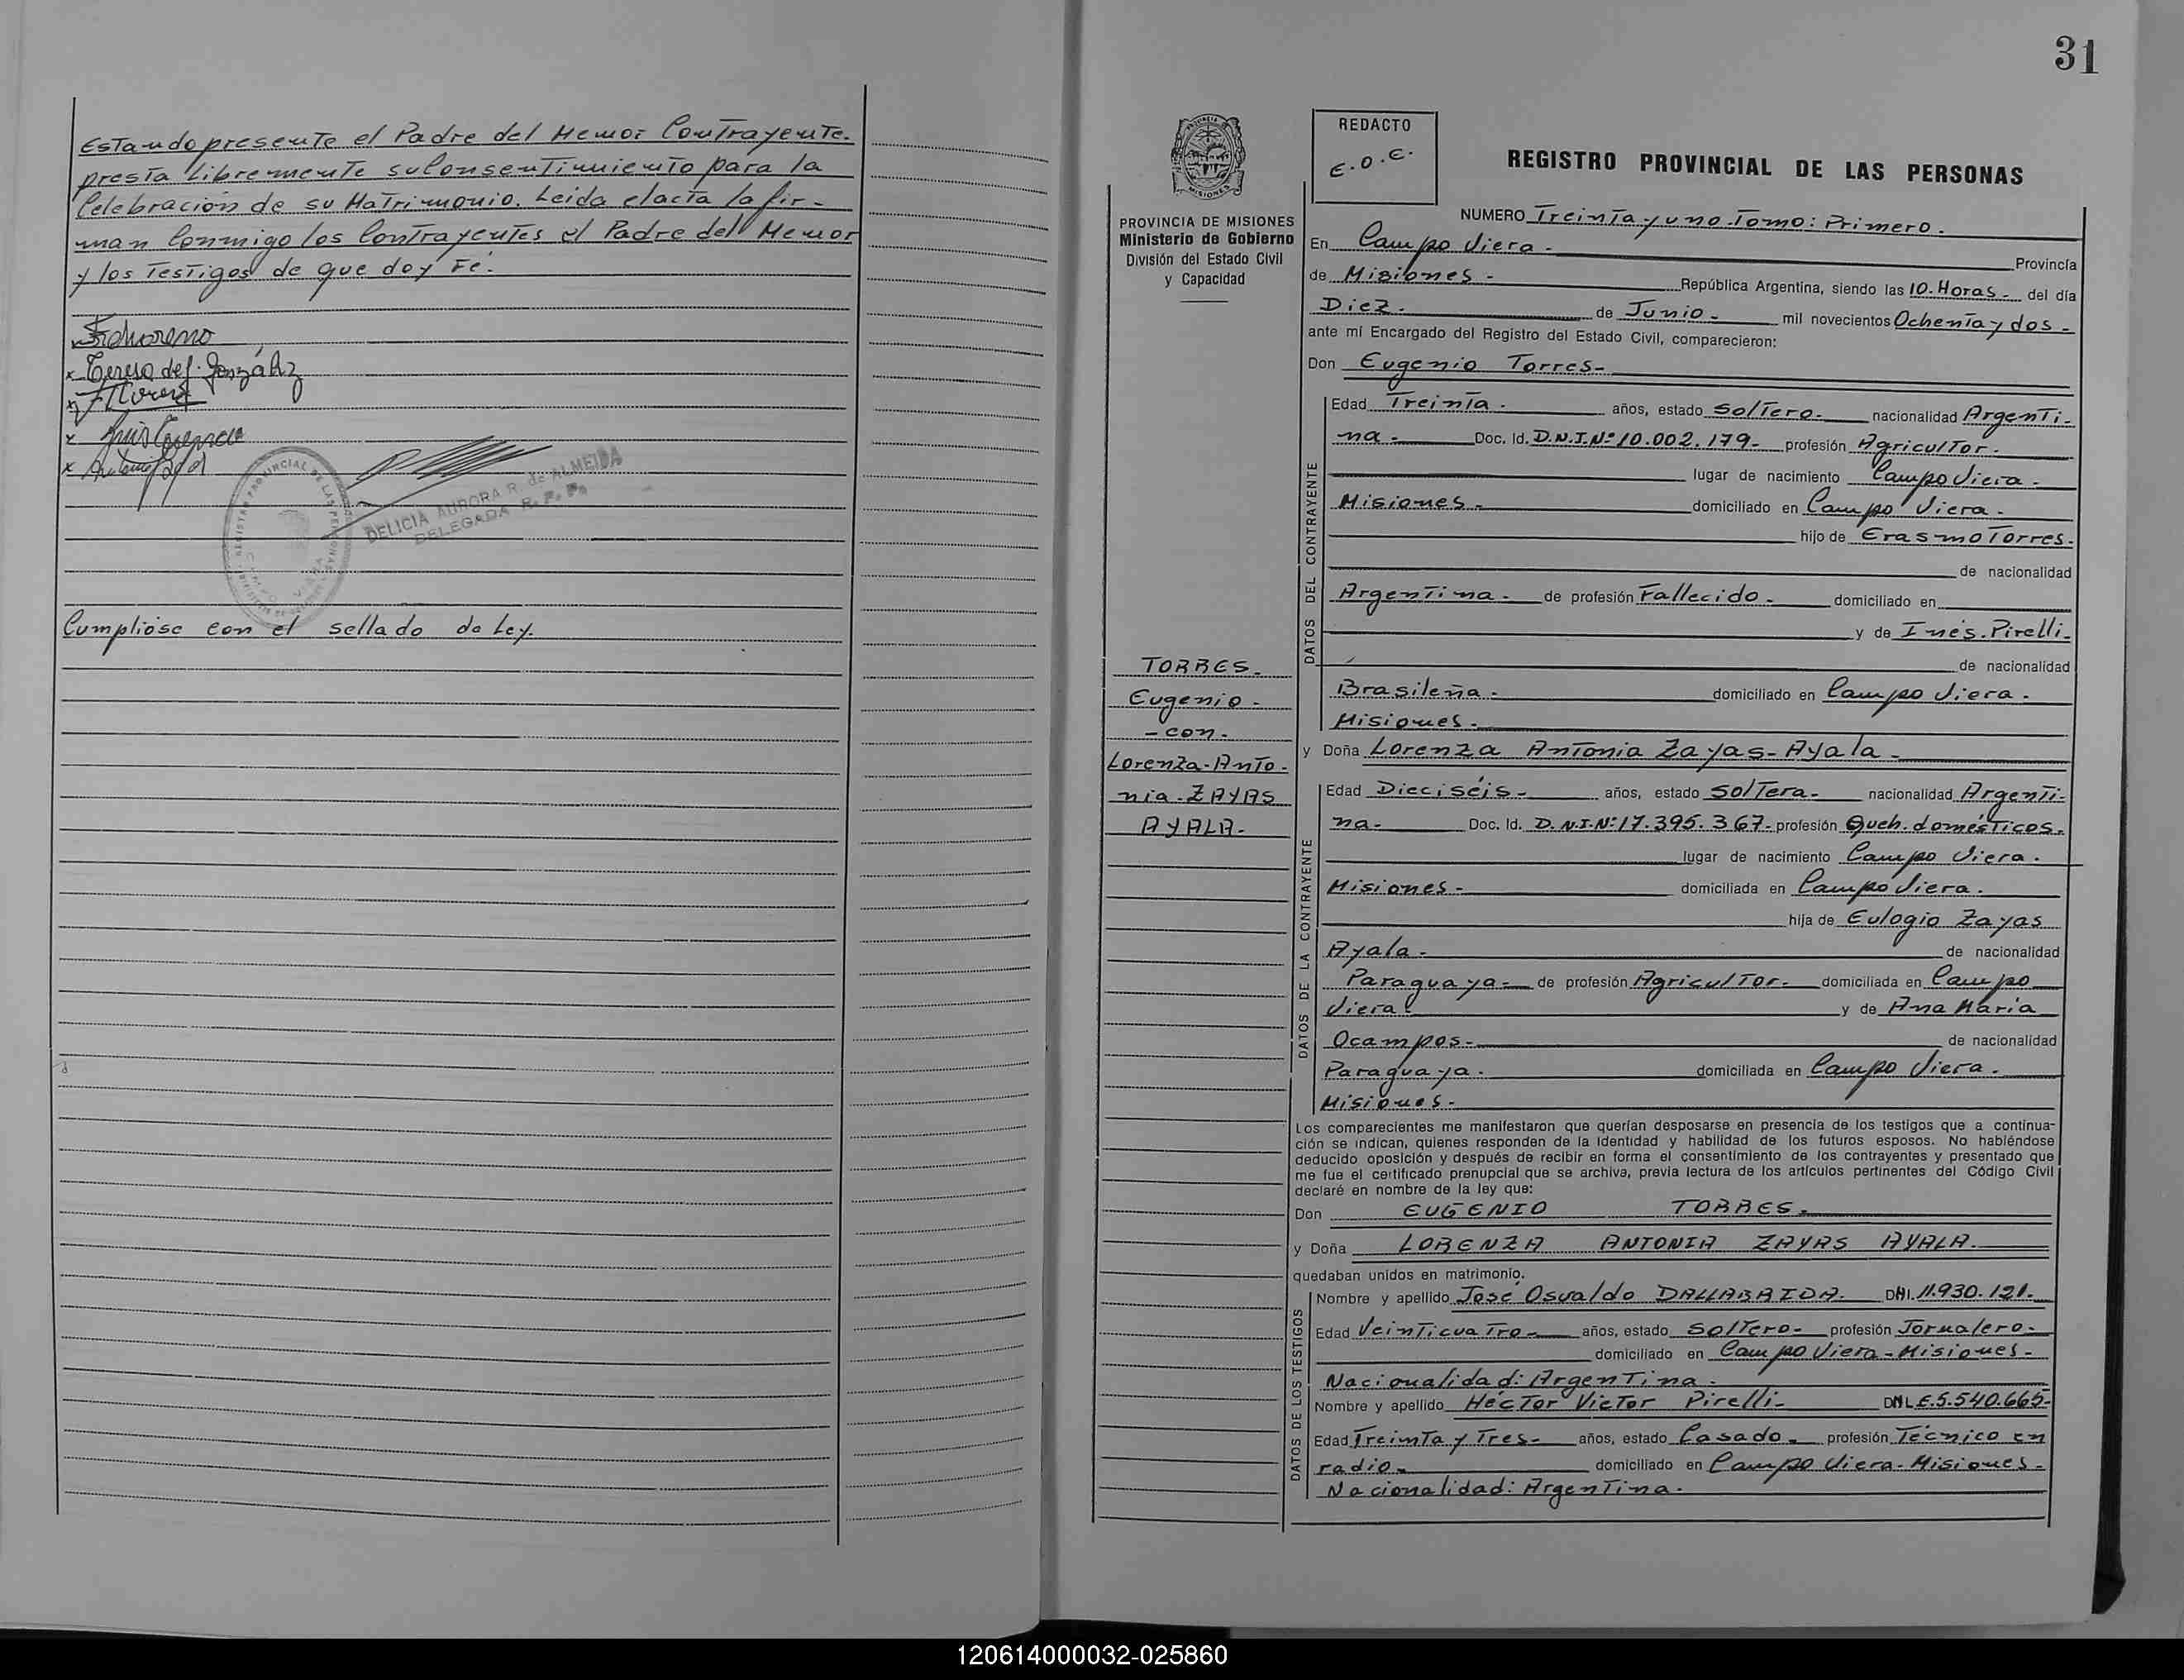 Estando presente el Padre del Menor Contrayente.
presta libremente su Consentimiento para la
Celebración de su Matrimonio. Leida el acta la fir-
man Conmigo los Contrayentes el Padre del Menor
y los Testigos de que doy Fé.
x Teresa del. González
DELICIA AURORA R. de ALMEIDA
DELEGADA R. P. P.
Cumplióse con el sellado de Ley.
31
REDACTO
E.O.E.
REGISTRO PROVINCIAL DE LAS PERSONAS
PROVINCIA DE MISIONES
Ministerio de Gobierno
División del Estado Civil
y Capacidad
NUMERO Treinta y uno. Tomo: Primero.
En Campo Viera - Provincia
de Misiones - República Argentina, siendo las 10. Horas - del día
Diez. de Junio - mil novecientos Ochenta y dos -
ante mí Encargado del Registro del Estado Civil, comparecieron:
Don Eugenio Torres-
DATOS DEL CONTRAYENTE
Edad Treinta. años, estado Soltero. nacionalidad Argenti-
na - Doc. Id. D.N.I.Nº 10.002.179- profesión Agricultor.
lugar de nacimiento Campo Viera -
Misiones - domiciliado en Campo Viera.
hijo de Erasmo Torres-
de nacionalidad
Argentina - de profesión Fallecido - domiciliado en
y de Inés. Pirelli-
de nacionalidad
Brasileña - domiciliado en Campo Viera.
Misiones -
TORRES-
Eugenio -
- con -
Lorenza-Anto-
nia - ZAYAS
AYALA-
y Doña Lorenza Antonia Zayas-Ayala -
DATOS DE LA CONTRAYENTE
Edad Dieciséis - años, estado Soltera - nacionalidad Argenti-
na- Doc. Id. D.N.I.Nº 17.395.367- profesión Queh. domésticos.
lugar de nacimiento Campo Viera.
Misiones - domiciliada en Campo Viera.
hija de Eulogio Zayas
Ayala - de nacionalidad
Paraguaya - de profesión Agricultor - domiciliada en Campo
Viera - y de Ana María
Ocampos - de nacionalidad
Paraguaya. domiciliada en Campo Viera.
Misiones -
Los comparecientes me manifestaron que querían desposarse en presencia de los testigos que a continua-
ción se indican, quienes responden de la identidad y habilidad de los futuros esposos. No habiéndose
deducido oposición y después de recibir en forma el consentimiento de los contrayentes y presentado que
me fue el certificado prenupcial que se archiva, previa lectura de los artículos pertinentes del Código Civil
declaré en nombre de la ley que:
Don EUGENIO TORRES-
y Doña LORENZA ANTONIA ZAYAS AYALA-
quedaban unidos en matrimonio.
DATOS DE LOS TESTIGOS
Nombre y apellido José Osvaldo DALLABRIDA. DNI. 11.930.121.
Edad Veinticuatro - años, estado Soltero - profesión Jornalero-
domiciliado en Campo Viera - Misiones -
Nacionalidad: Argentina -
Nombre y apellido Héctor Victor Pirelli- L.E. 5.540.665-
Edad Treinta y Tres - años, estado Casado - profesión Técnico en
radio - domiciliado en Campo Viera - Misiones -
Nacionalidad: Argentina -
120614000032-025860